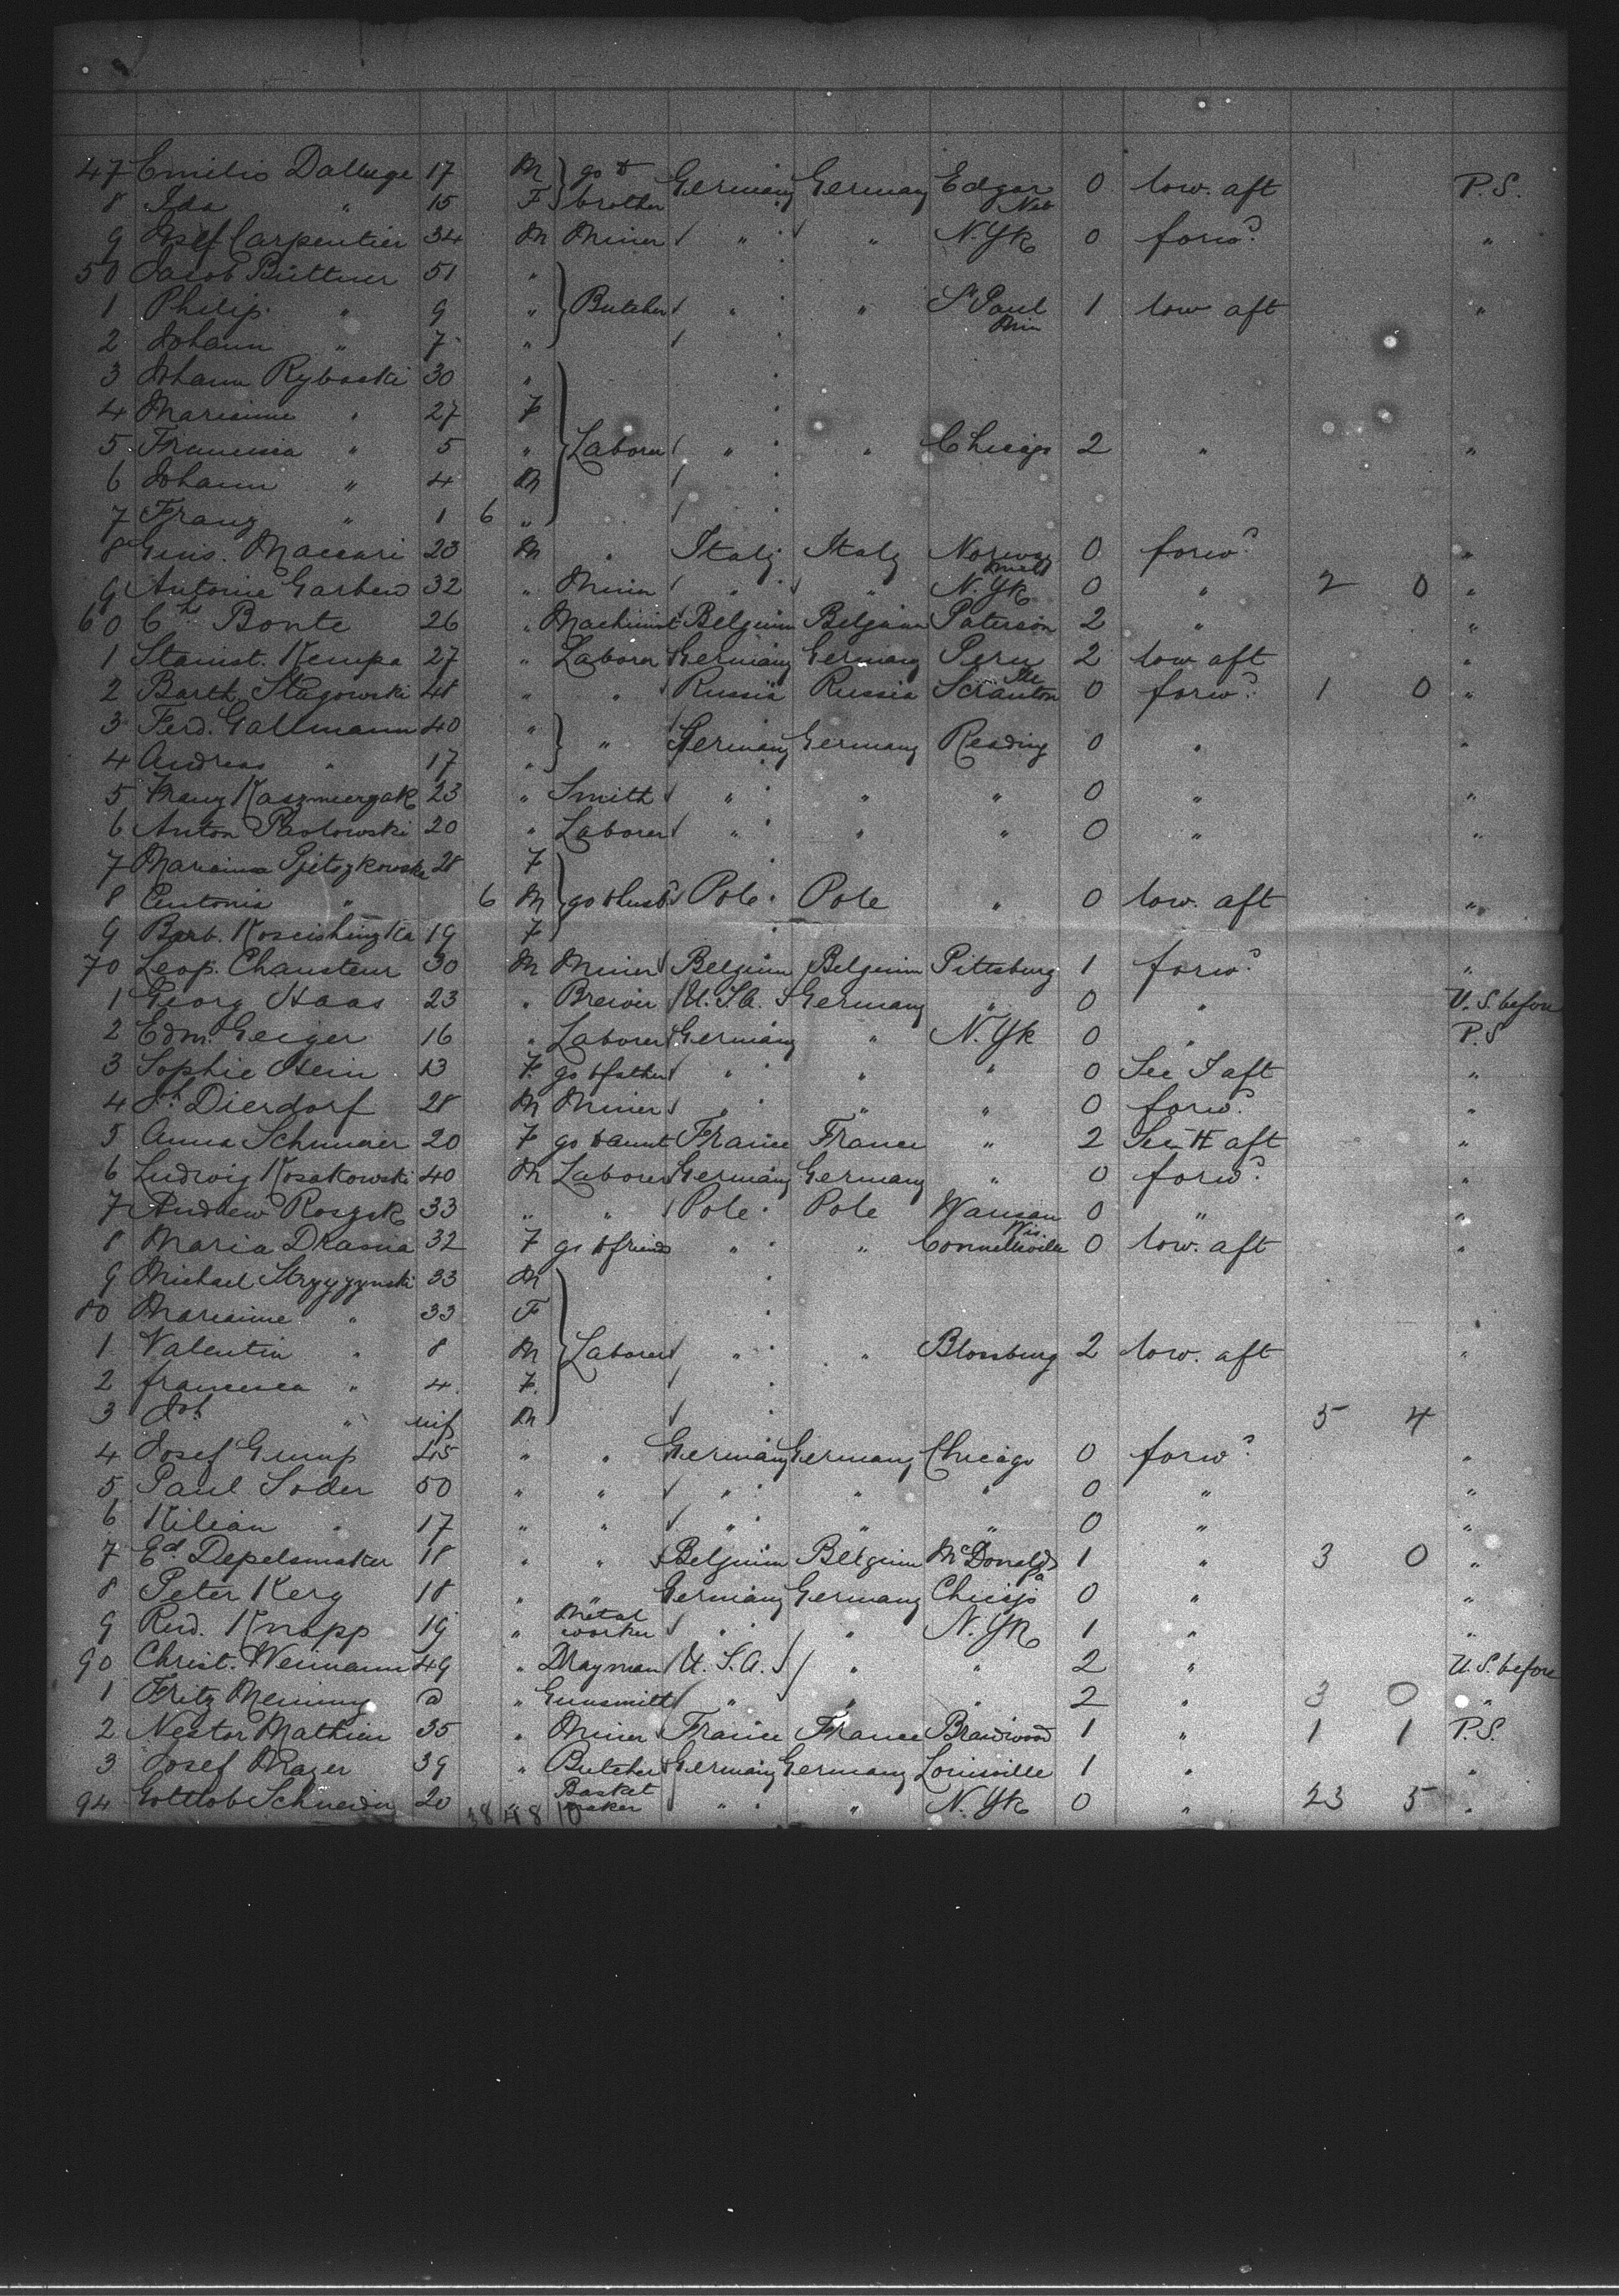 47 Emilio Dalluge 17 M } go to Germany Germany Edgar Neb 0 low. aft P.S.
8 Ida " 15 F } brother
9 Josef Carpentier 34 M Miner " " N.Yk 0 forwd "
50 Jacob Büttner 51 "
1 Philip " 9 " } Butcher " " St Paul Min 1 low aft "
2 Johann " 7 "
3 Johann Ryboski 30 "
4 Marianne " 27 F
5 Francisca " 5 " } Laborer " " Chicago 2 " "
6 Johann " 4 M
7 Franz " 1 6 "
8 Guis. Maccari 23 M " Italy Italy 0 forwd "
9 Antoine Garben 32 " Miner " " N.Yk 0 " 2 0 "
60 Chs Bonte 26 " Machinist Belgium Belgium Paterson 2 " "
1 Stanist. Kempa 27 " Laborer Germany Germany Peru Ill 2 low aft "
2 Barth. Stagowski 48 " " Russia Russia Scranton 0 forwd 1 0 "
3 Ferd. Gallmann 40 " } " Germany Germany Reading 0 " "
4 Andreas " 17 "
5 Franz Kaszmierzak 23 " Smith " " " 0 " "
6 Anton Pavlowski 20 " Laborer " " " 0 " "
7 Marianna 28 F
8 " 6 M } go to husbd Pole Pole " 0 low. aft "
9 Barb. 19 F
70 Leop. Chausteur 30 M Miner Belgium Belgium Pittsburg 1 forwd "
1 Georg Haas 23 " Brewer U.S.A. Germany " 0 " U.S. before
2 Edm. Geiger 16 " Laborer Germany " N.Yk 0 " P.S
3 Sophie Hein 13 F. go to father " " " 0 Sec I aft "
4 Jh Dierdorf 28 M Miner " " " 0 forwd "
5 Anna Schmeier 20 F go to aunt France France " 2 Sec II aft "
6 Ludwig Kosakowski 40 M Laborer Germany Germany " 0 forwd "
7 Andrew Roszak 33 " " Pole Pole Wausau Wis. 0 " "
8 Maria Drasna 32 F go to friends " " Connellsville 0 low. aft "
9 Michael Stryzzynski 33 M
80 Marianne " 33 F
1 Valentin " 8 M } Laborer " " Blossburg 2 low. aft "
2 francisca " 4. F.
3 Joh " inf M 5 4
4 Josef Gump 45 " " Germany Germany Chicago 0 forwd "
5 Paul Soder 50 " " " " " 0 " "
6 Kilian " 17 " " " " " 0 " "
7 Ed. Depelsmaker 18 " " Belgium Belgium McDonald Pa 1 " 3 0 "
8 Peter Kerg 18 " " Germany Germany Chicago 0 " "
9 Rud. Knopp 19 " Metal worker " " N.Yk 1 " "
90 Christ. Weimann 49 " Drayman U.S.A. " " 2 " U.S. before
1 Fritz Meining " Gunsmith " " " 2 " 3 0 "
2 Nestor Mathieu 35 " Miner France France Braidwood 1 " 1 1 P.S.
3 Josef Mazer 39 " Butcher Germany Germany Louisville 1 " "
94 Gottlob Schneider 20 " Basket maker " " N.Yk 0 " 23 5 "
38 48 10